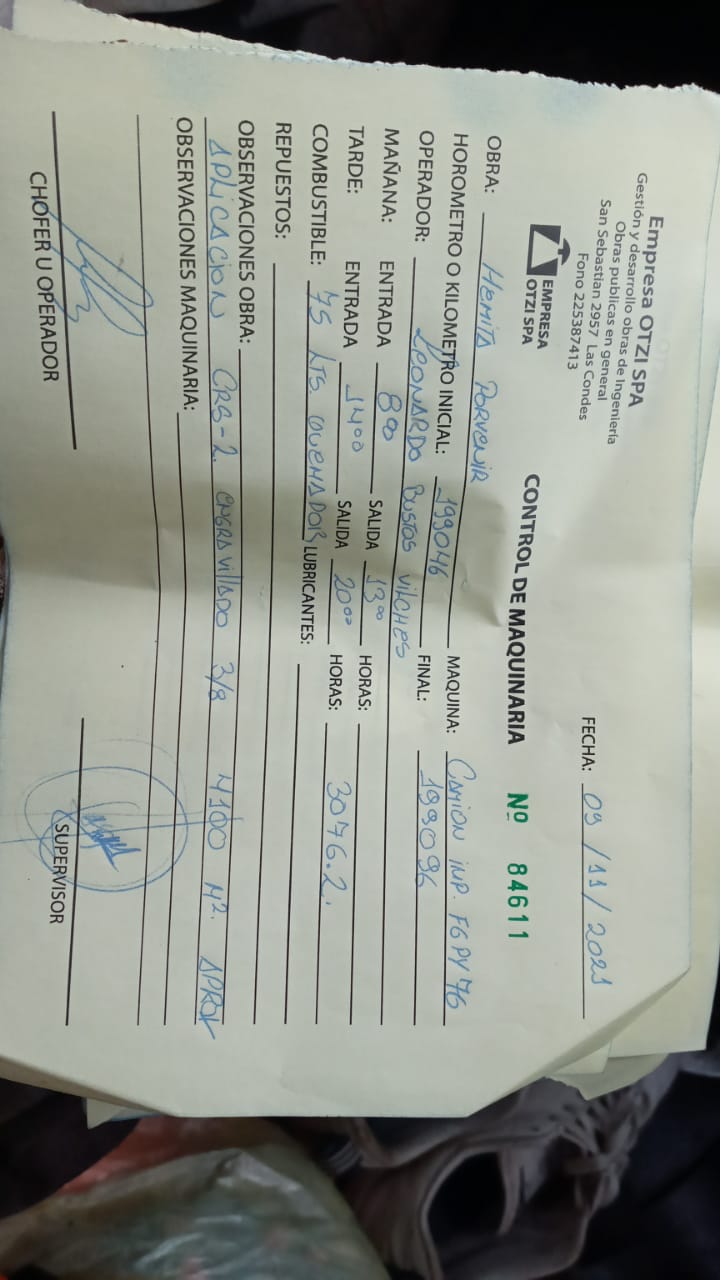 Empresa OTZI SPA
Gestión y desarrollo obras de Ingeniería
Obras publicas en general
San Sebastian 2957 Las Condes
Fono 225387413
EMPRESA
OTZI SPA
FECHA: 09/11/2021
CONTROL DE MAQUINARIA Nº 84611
OBRA: Hemita Porvenir
MAQUINA: Camion imp. FGPY 76
HOROMETRO O KILOMETRO INICIAL: 199046 FINAL: 199096
OPERADOR: Leonardo Bustos Vilches
MAÑANA: ENTRADA 8°° SALIDA 13°° HORAS:
TARDE: ENTRADA 14°° SALIDA 20°° HORAS: 3076.2.
COMBUSTIBLE: 75 Lts. quemador LUBRICANTES:
REPUESTOS:
OBSERVACIONES OBRA:
Aplicacion CRS-2. engravillado 3/8 4100 M². Aprox
OBSERVACIONES MAQUINARIA:
CHOFER U OPERADOR
SUPERVISOR